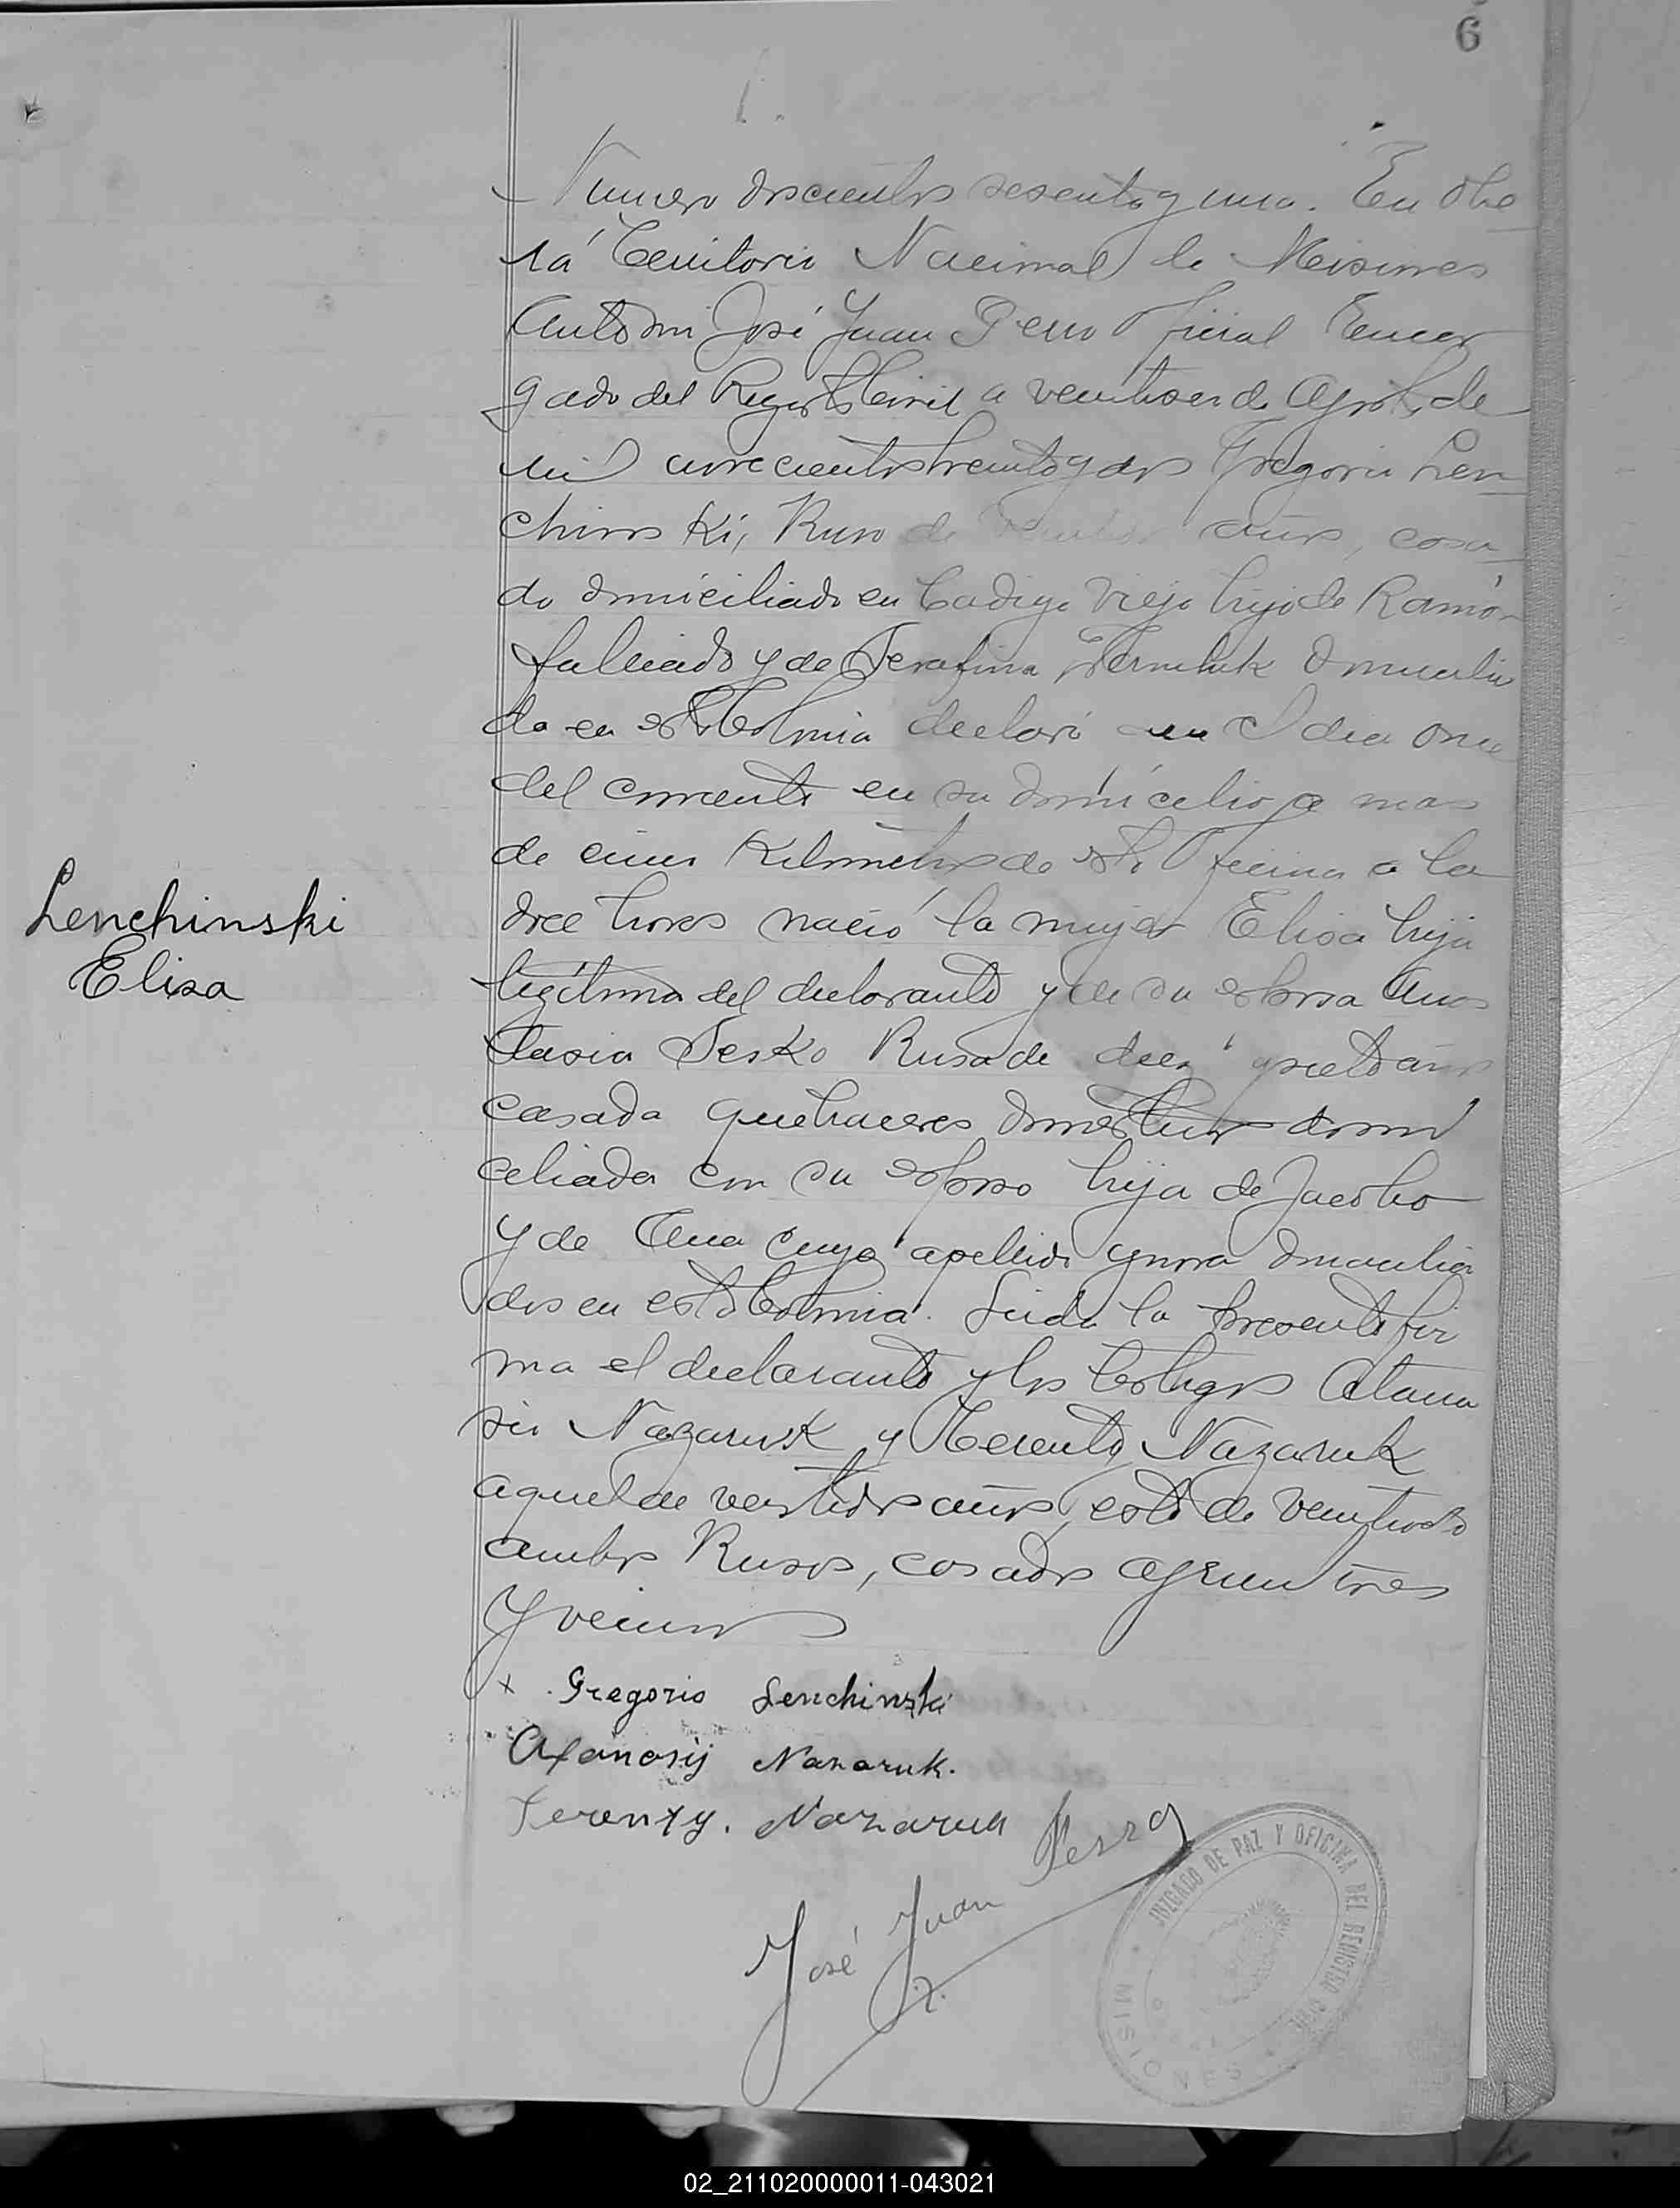 6
Numero doscientos sesenta y uno. En Obe
rá Territorio Nacional de Misiones
Ante mi José Juan Perro Oficial Encar
gado del Registro Civil a veintiseis de Agosto de
mil novecientos treinta y dos Gregorio Len
chins Ki, Ruso de años, casa
do domiciliado en Picada Vieja hijo de Ramón
fallecido y de Serafina domicilia
da en esta Colonia declaró que el dia once
del corriente en su domicilio a mas
de cinco Kilometros de esta Oficina a las
doce horas nació la mujer Elisa hija
legítima del declarante y de su esposa Anas
tasia Sesko Rusa de diez y siete años
casada quehaceres domesticos domi
ciliada con su esposo hija de Jacobo
y de Ana cuyo apellido ygnora domicilia
dos en esta Colonia. Leida la presente fir
ma el declarante y los testigos Atana
sio Nazaruk y Terento Nazaruk
aquel de veintidos años, este de veintiocho
ambos Rusos, casados agricultores
y vecinos
Lenchinski
Elisa
x Gregorio Lenchinski
Afanasij Nazaruk.
Terenty. Nazaruk
José Juan Perro
JUZGADO DE PAZ Y OFICINA DEL REGISTRO CIVIL
MISIONES
02_211020000011-043021